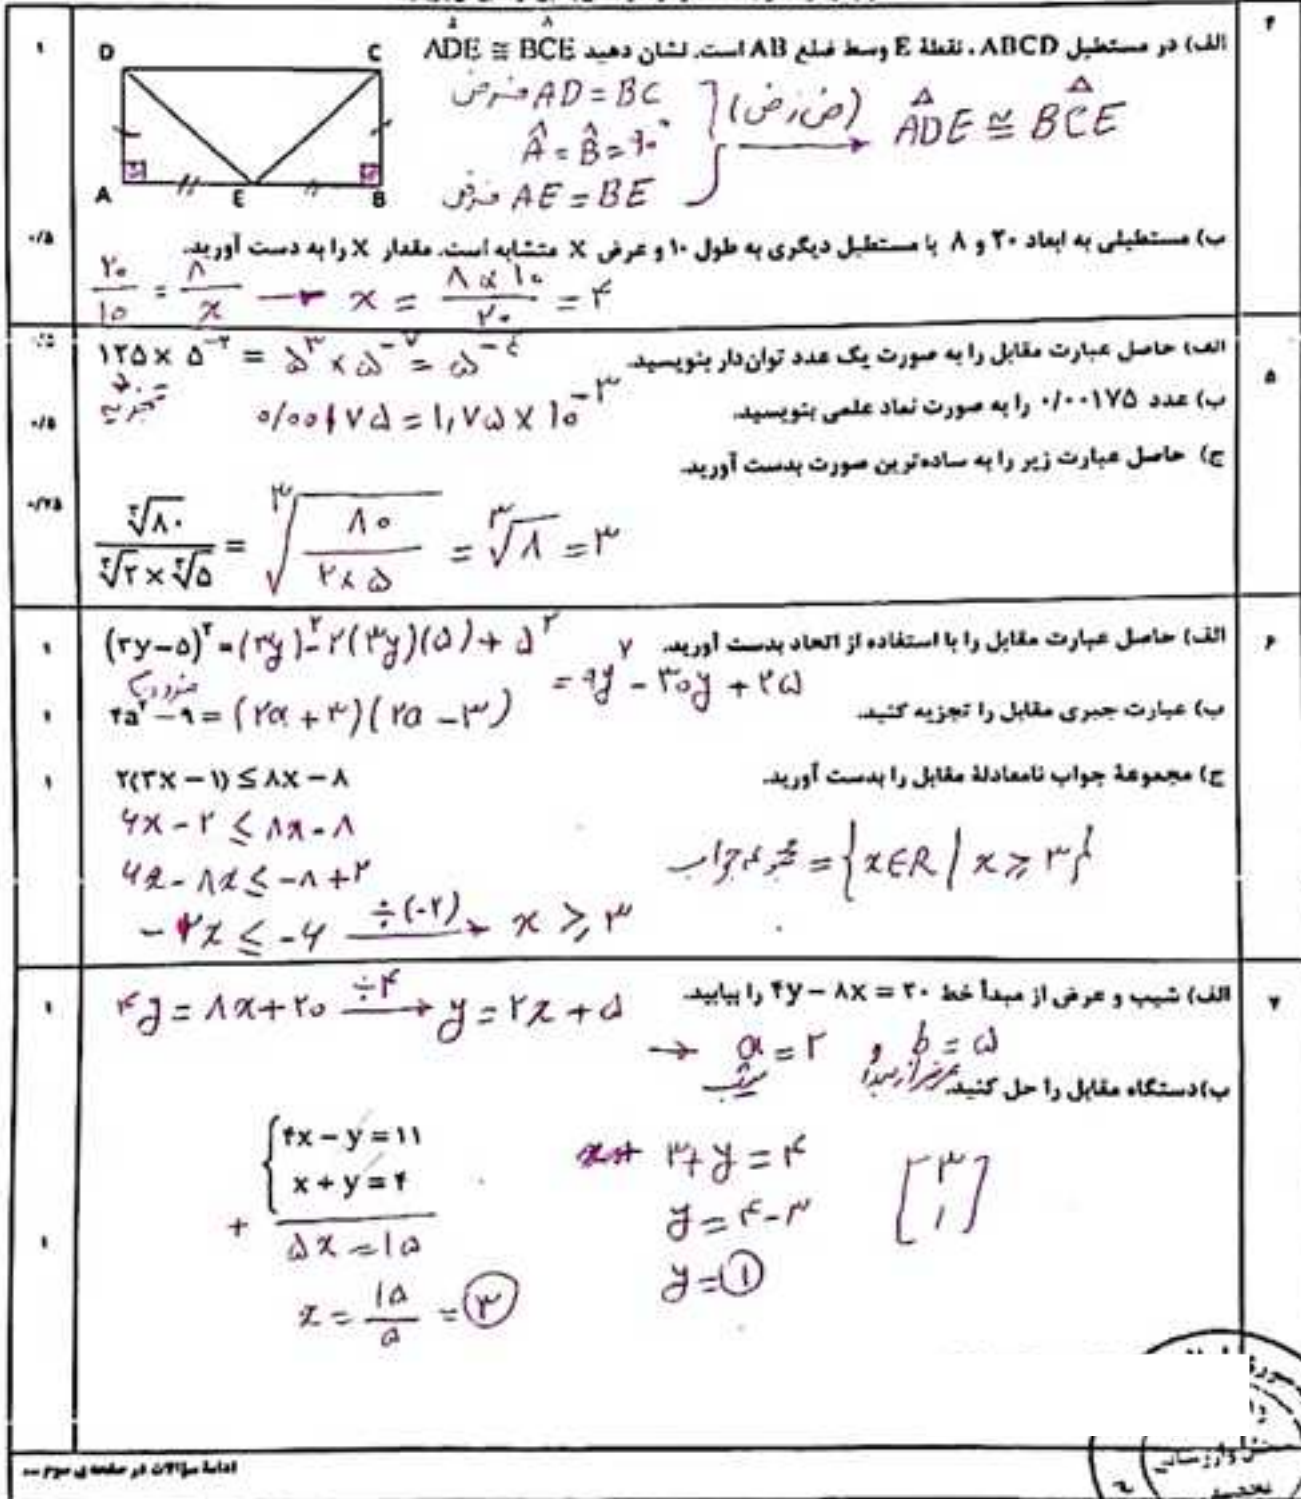 ۴
الف) در مستطیل ABCD ، نقطهٔ E وسط ضلع AB است. نشان دهید ADE ≅ BCE
۱
D C
A E B
فرض AD = BC
Â = B̂ = ۹۰°
فرض AE = BE
(ض ز ض) → ADE ≅ BCE
ب) مستطیلی به ابعاد ۲۰ و ۸ با مستطیل دیگری به طول ۱۰ و عرض X متشابه است. مقدار X را به دست آورید.
۰/۵
۲۰/۱۰ = ۸/x → x = ۸×۱۰/۲۰ = ۴
۵
الف) حاصل عبارت مقابل را به صورت یک عدد توان‌دار بنویسید.
ب) عدد ۰/۰۰۱۷۵ را به صورت نماد علمی بنویسید.
۰/۵
۰/۰۰۱۷۵ = ۱,۷۵ × ۱۰⁻³
ج) حاصل عبارت زیر را به ساده‌ترین صورت بدست آورید.
۰/۷۵
∛۸۰ / ∛۲ × ∛۵ = ∛(۸۰ / ۲×۵) = ∛۸ = ۳
۶
الف) حاصل عبارت مقابل را با استفاده از اتحاد بدست آورید.
۱
(۳y−۵)² = (۳y)² − ۲(۳y)(۵) + ۵²
= ۹y² − ۳۰y + ۲۵
ب) عبارت جبری مقابل را تجزیه کنید.
۱
۴a² − ۹ = (۲a + ۳)(۲a − ۳)
ج) مجموعهٔ جواب نامعادلهٔ مقابل را بدست آورید.
۱
۲(۳x − ۱) ≤ ۸x − ۸
۶x − ۲ ≤ ۸x − ۸
۶x − ۸x ≤ −۸ + ۲
−۲x ≤ −۶ ÷(−۲) → x ≥ ۳
مجموعه جواب = {x∈R | x ≥ ۳}
۷
الف) شیب و عرض از مبدأ خط ۴y − ۸x = ۲۰ را بیابید.
۱
۴y = ۸x + ۲۰ ÷۴ → y = ۲x + ۵
→ a = ۲ و b = ۵
شیب عرض از مبدا
ب)دستگاه مقابل را حل کنید.
۱
۴x − y = ۱۱
x + y = ۴
+
۵x = ۱۵
x = ۱۵/۵ = ۳
۳ + y = ۴
y = ۴ − ۳
y = ۱
[۳
۱]
ادامهٔ سؤالات در صفحه‌ی سوم ...